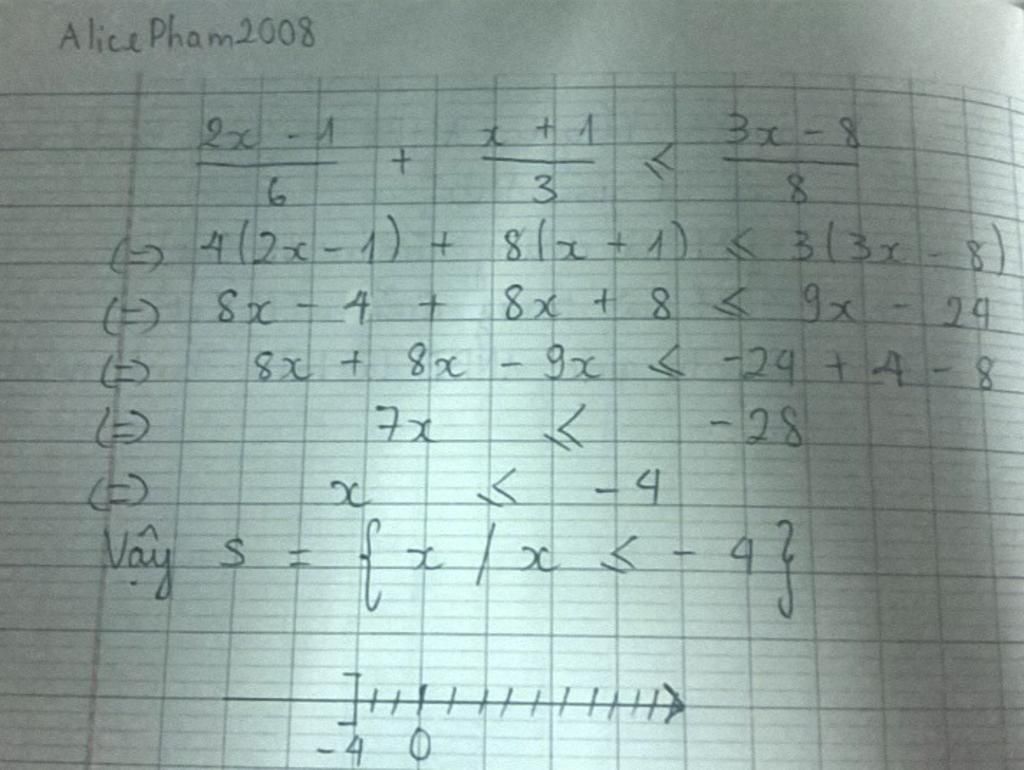 AlicePham2008
(2x - 1)/6 + (x + 1)/3 ≤ (3x - 8)/8
(=) 4(2x - 1) + 8(x + 1) ≤ 3(3x - 8)
(=) 8x - 4 + 8x + 8 ≤ 9x - 24
(=) 8x + 8x - 9x ≤ -24 + 4 - 8
(=) 7x ≤ -28
(=) x ≤ -4
Vậy S = { x / x ≤ - 4 }
-4 0